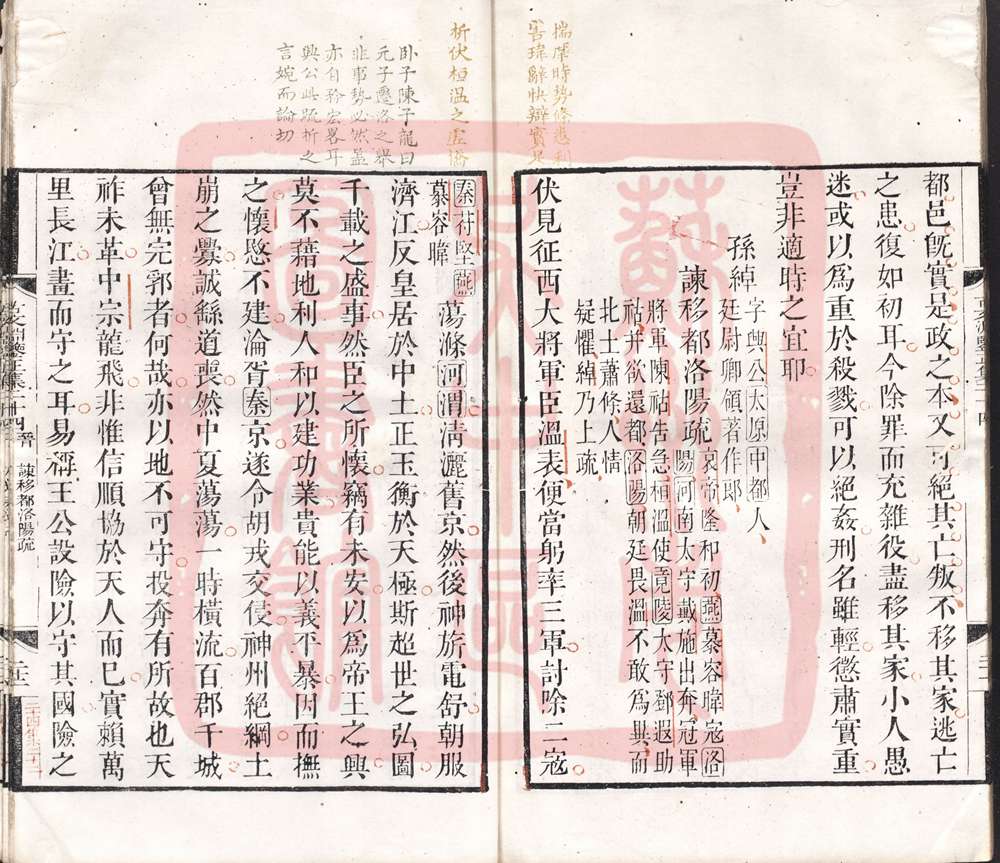 揣摩時勢條悉利
害瑋辭快辯實足
折伏桓溫之虛憍
臥子陳子龍曰
元子遷洛之舉
非事勢必然蓋
亦自矜宏畧耳
興公此疏折之
言婉而論切
都邑旣實是政之本又可絕其亡叛不移其家逃亡
之患復如初耳今除罪而充雜役盡移其家小人愚
迷或以爲重於殺戮可以絕姦刑名雖輕懲肅實重
豈非適時之宜耶
孫綽字興公太原中都人
廷尉卿領著作郎
諫移都洛陽疏哀帝隆和初燕慕容暐寇洛
陽河南太守戴施出奔冠軍
將軍陳祜告急桓溫使竟陵太守鄧遐助
祜并欲還都洛陽朝廷畏溫不敢爲異而
北土蕭條人情
疑懼綽乃上疏
伏見征西大將軍臣溫表便當躬率三軍討除二寇
秦苻堅燕
慕容暐蕩滌河渭淸灑舊京然後神旂電舒朝服
濟江反皇居於中土正玉衡於天極斯超世之弘圖
千載之盛事然臣之所懷竊有未安以爲帝王之興
莫不藉地利人和以建功業貴能以義平暴因而撫
之懷愍不建淪胥秦京遂令胡戎交侵神州絕綱土
崩之釁誠繇道喪然中夏蕩蕩一時橫流百郡千城
曾無完郛者何哉亦以地不可守投奔有所故也天
祚未革中宗龍飛非惟信順協於天人而巳實賴萬
里長江畫而守之耳易稱王公設險以守其國險之
諫移都洛陽疏